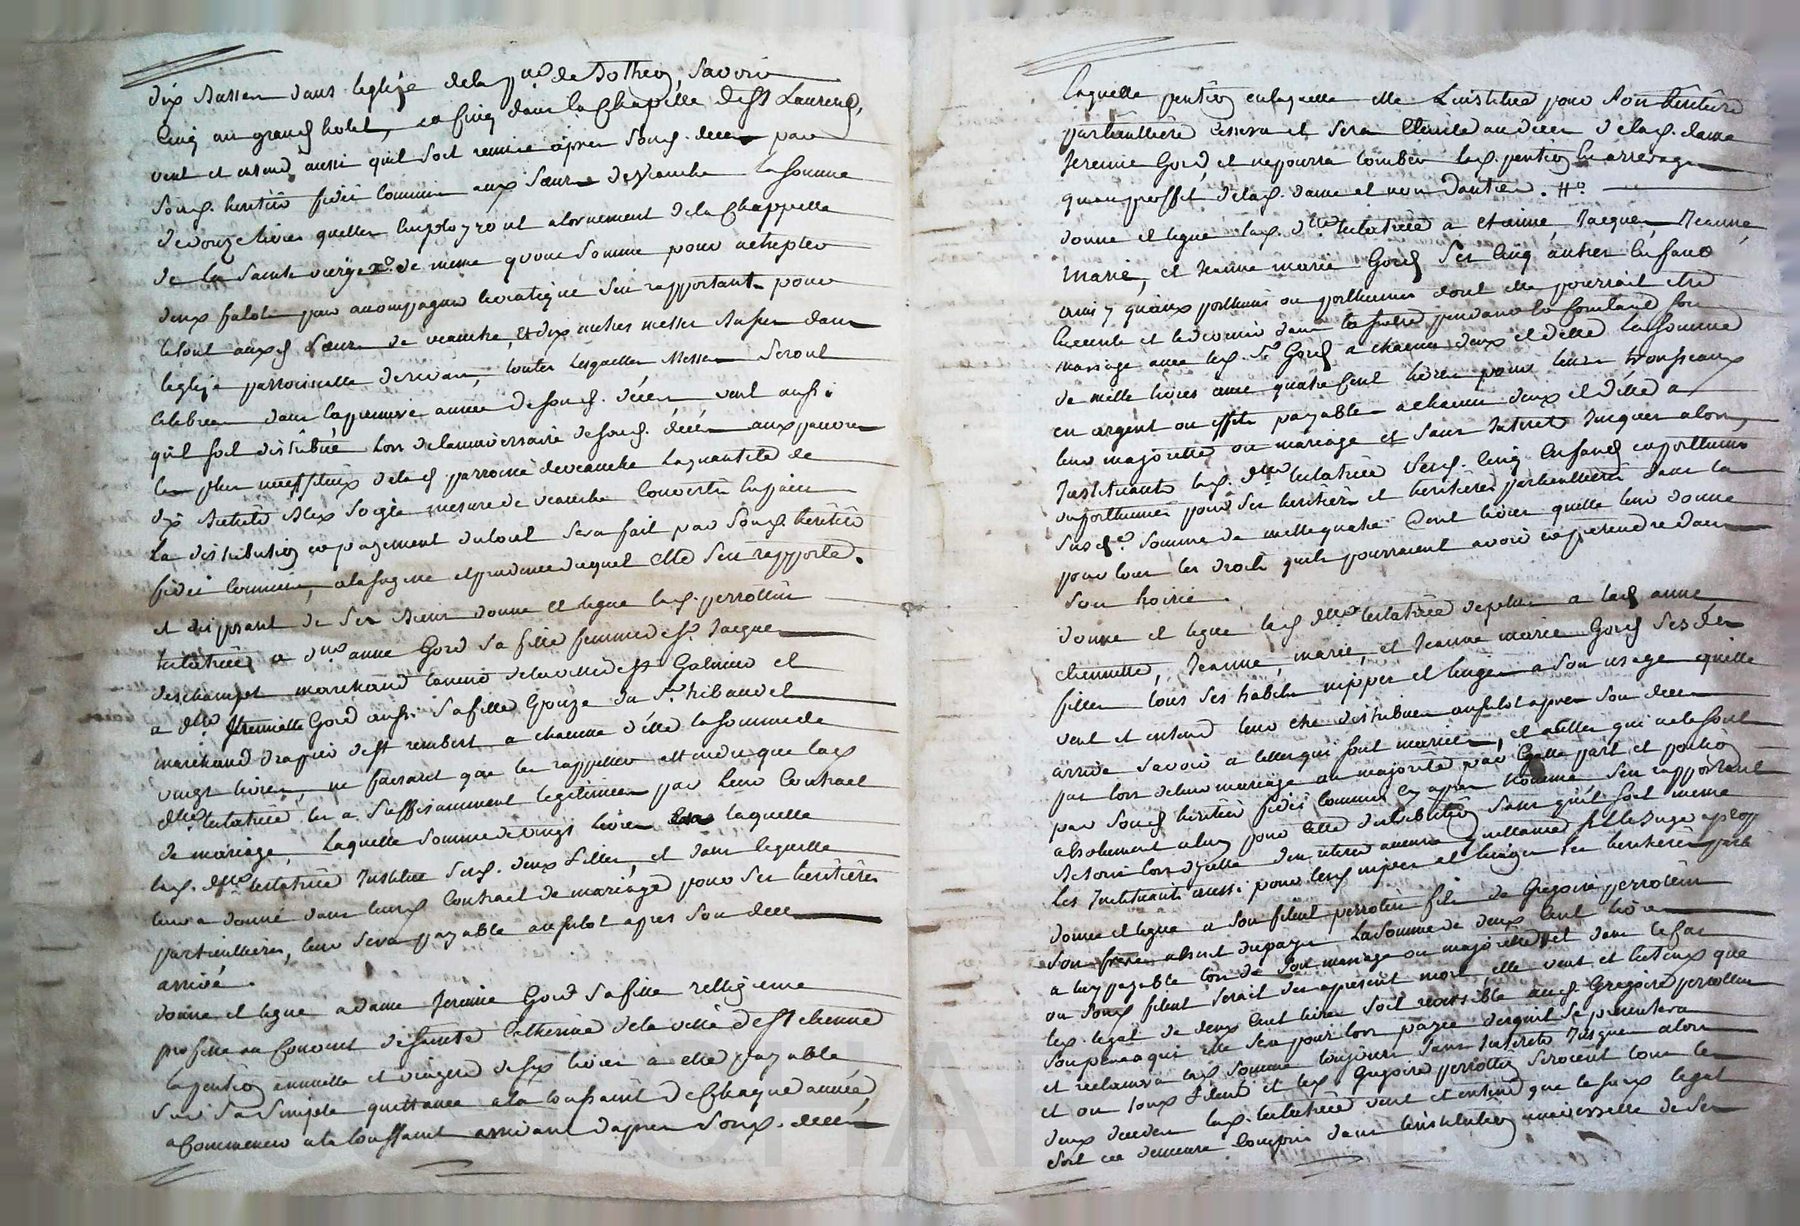 dix basses dans leglize de la p.sse de Bothéon, savoir
cinq au grand hotel, et cinq dans la chapelle de St Laurend,
veut et entend aussi quil soit remis apres son d. deces par
son d. heritier fidei commis aux sœurs de veauche la somme
de douze livres quelles employront a lornement de la chappelle
de la sainte vierge de meme quune somme pour achepter
deux falots pour acompagner le viatique sen rapportant pour
le tout auxd sœurs de veauche, et dix autres messes basses dans
leglize parroissialle de rivas, toutes lesquelles Messes seront
celebrees dans la premiere annee de son d. déces veut aussi
quil soit distribué lors de laniversaire de son d. décés aux pauvres
les plus necessiteux de la d parroisse de veauche la quantité de
dix bichets bled soigle mesure de veauche convertis en pain
la distribution et payement du tout sera fait par son d heritier
fidei commis, a la sagesse et prudence duquel elle sen rapporte.
et disposant de ses biens donne et legue la d. perrottin
testatrice a d.lle anne Gord sa fille femme de s.r Jacques
deschamps marchand tanneur de la ville de St Galmier et
a d.lle Etiennette Gord aussi sa fille Epouze du s.r thibaud et
marchand drapier de St rembert a chacune d'elle la somme de
vingt livres, ne faisant que les rappeller attendu que la d
d.lle testatrice les a suffisamment legitimées par leur contract
de mariage, laquelle somme de vingt livres laquelle
la d. d.lle testatrice Institue ses d. deux filles, et dans lequelle
leur a donné dans leurs d contract de mariage pour ses heritieres
particullieres, leur sera payable aussitot apres son deces
arrivé.
donne et legue a dame Jeremie Gord sa fille relligieuse
professe au couvent de sainte Catherine de la ville de St etienne
la pention annuelle et viagere de six livres a elle payable
sur sa simple quittance a la toussaint de chaque année,
a commencer a la toussaint arrivant dapres son d. deces
laquelle pention en laquelle elle L'institue pour son heritiere
particulliere cessera et sera eteinte au deces de la d. dame
Jeremie Gord et ne pourra tomber la d. pention en arrerages
quau proffit de la d. dame et non dautres.
donne et legue la d. d.lle testatrice a etienne, Jacques, Jeanne,
Marie, et Jeanne marie Gord ses cinq autres enfans
ainsi quaux posthume ou posthumes dont elle pourrait etre
enceinte et a chacun deux et delle la somme
de mille livres avec quatre cent livres pour leurs trousseaux
en argent ou effets payable a chacun deux et d'elle a
leur majorité ou mariage et sans Interets Jusques alors,
Instituant la d. d.lle testatrice ses d. cinq enfans et posthume
ou posthumes pour ses heritiers et heritieres particullieres dans la
susd.e somme de mille quatre cent livres quelle leur donne
pour tous les droits quils pourraient avoir a prendre dans
son hoirie.
donne et legue la d d.lle testatrice de plus a la d anne
etiennette, Jeanne, marie, et Jeanne marie Gord ses d.es
filles tous ses habits nippes et linges a son usage quelle
veut et entend leur etre distribues aussitot apres son deces
arrivé savoir a celles qui sont mariées, et a celles qui ne le sont
pas lors de leur mariage ou majorité par egalle part et portion
par son d heritier fidei commis cy apres nommé sen rapportant
absolument a luy pour cette distribution sans quil soit meme
besoin lors dycelle den retirer aucune quittance
les Instituant aussi pour les d nippes et linges ses heritieres
donne et legue a son filleul perrotin fils de Gregoire perrotin
son frere absent du pays la somme de deux cent livres
a luy payable lors de son mariage ou majorité, et dans le cas
ou son d filleul serait des apresent mort elle veut et entend que
le d. legat de deux cent livres soit reversible au d Gregoire perrottin
son pere a qui elle sera pour lors payée desquil se presentera
et reclamera la d somme toujours sans Interets Jusques alors
et ou son d filleul et le d. Gregoire perrottin seroient tous les
deux decedes la d. testatrice veut et entend que le susd legat
soit et demeure compris dans linstitution universelle de ses